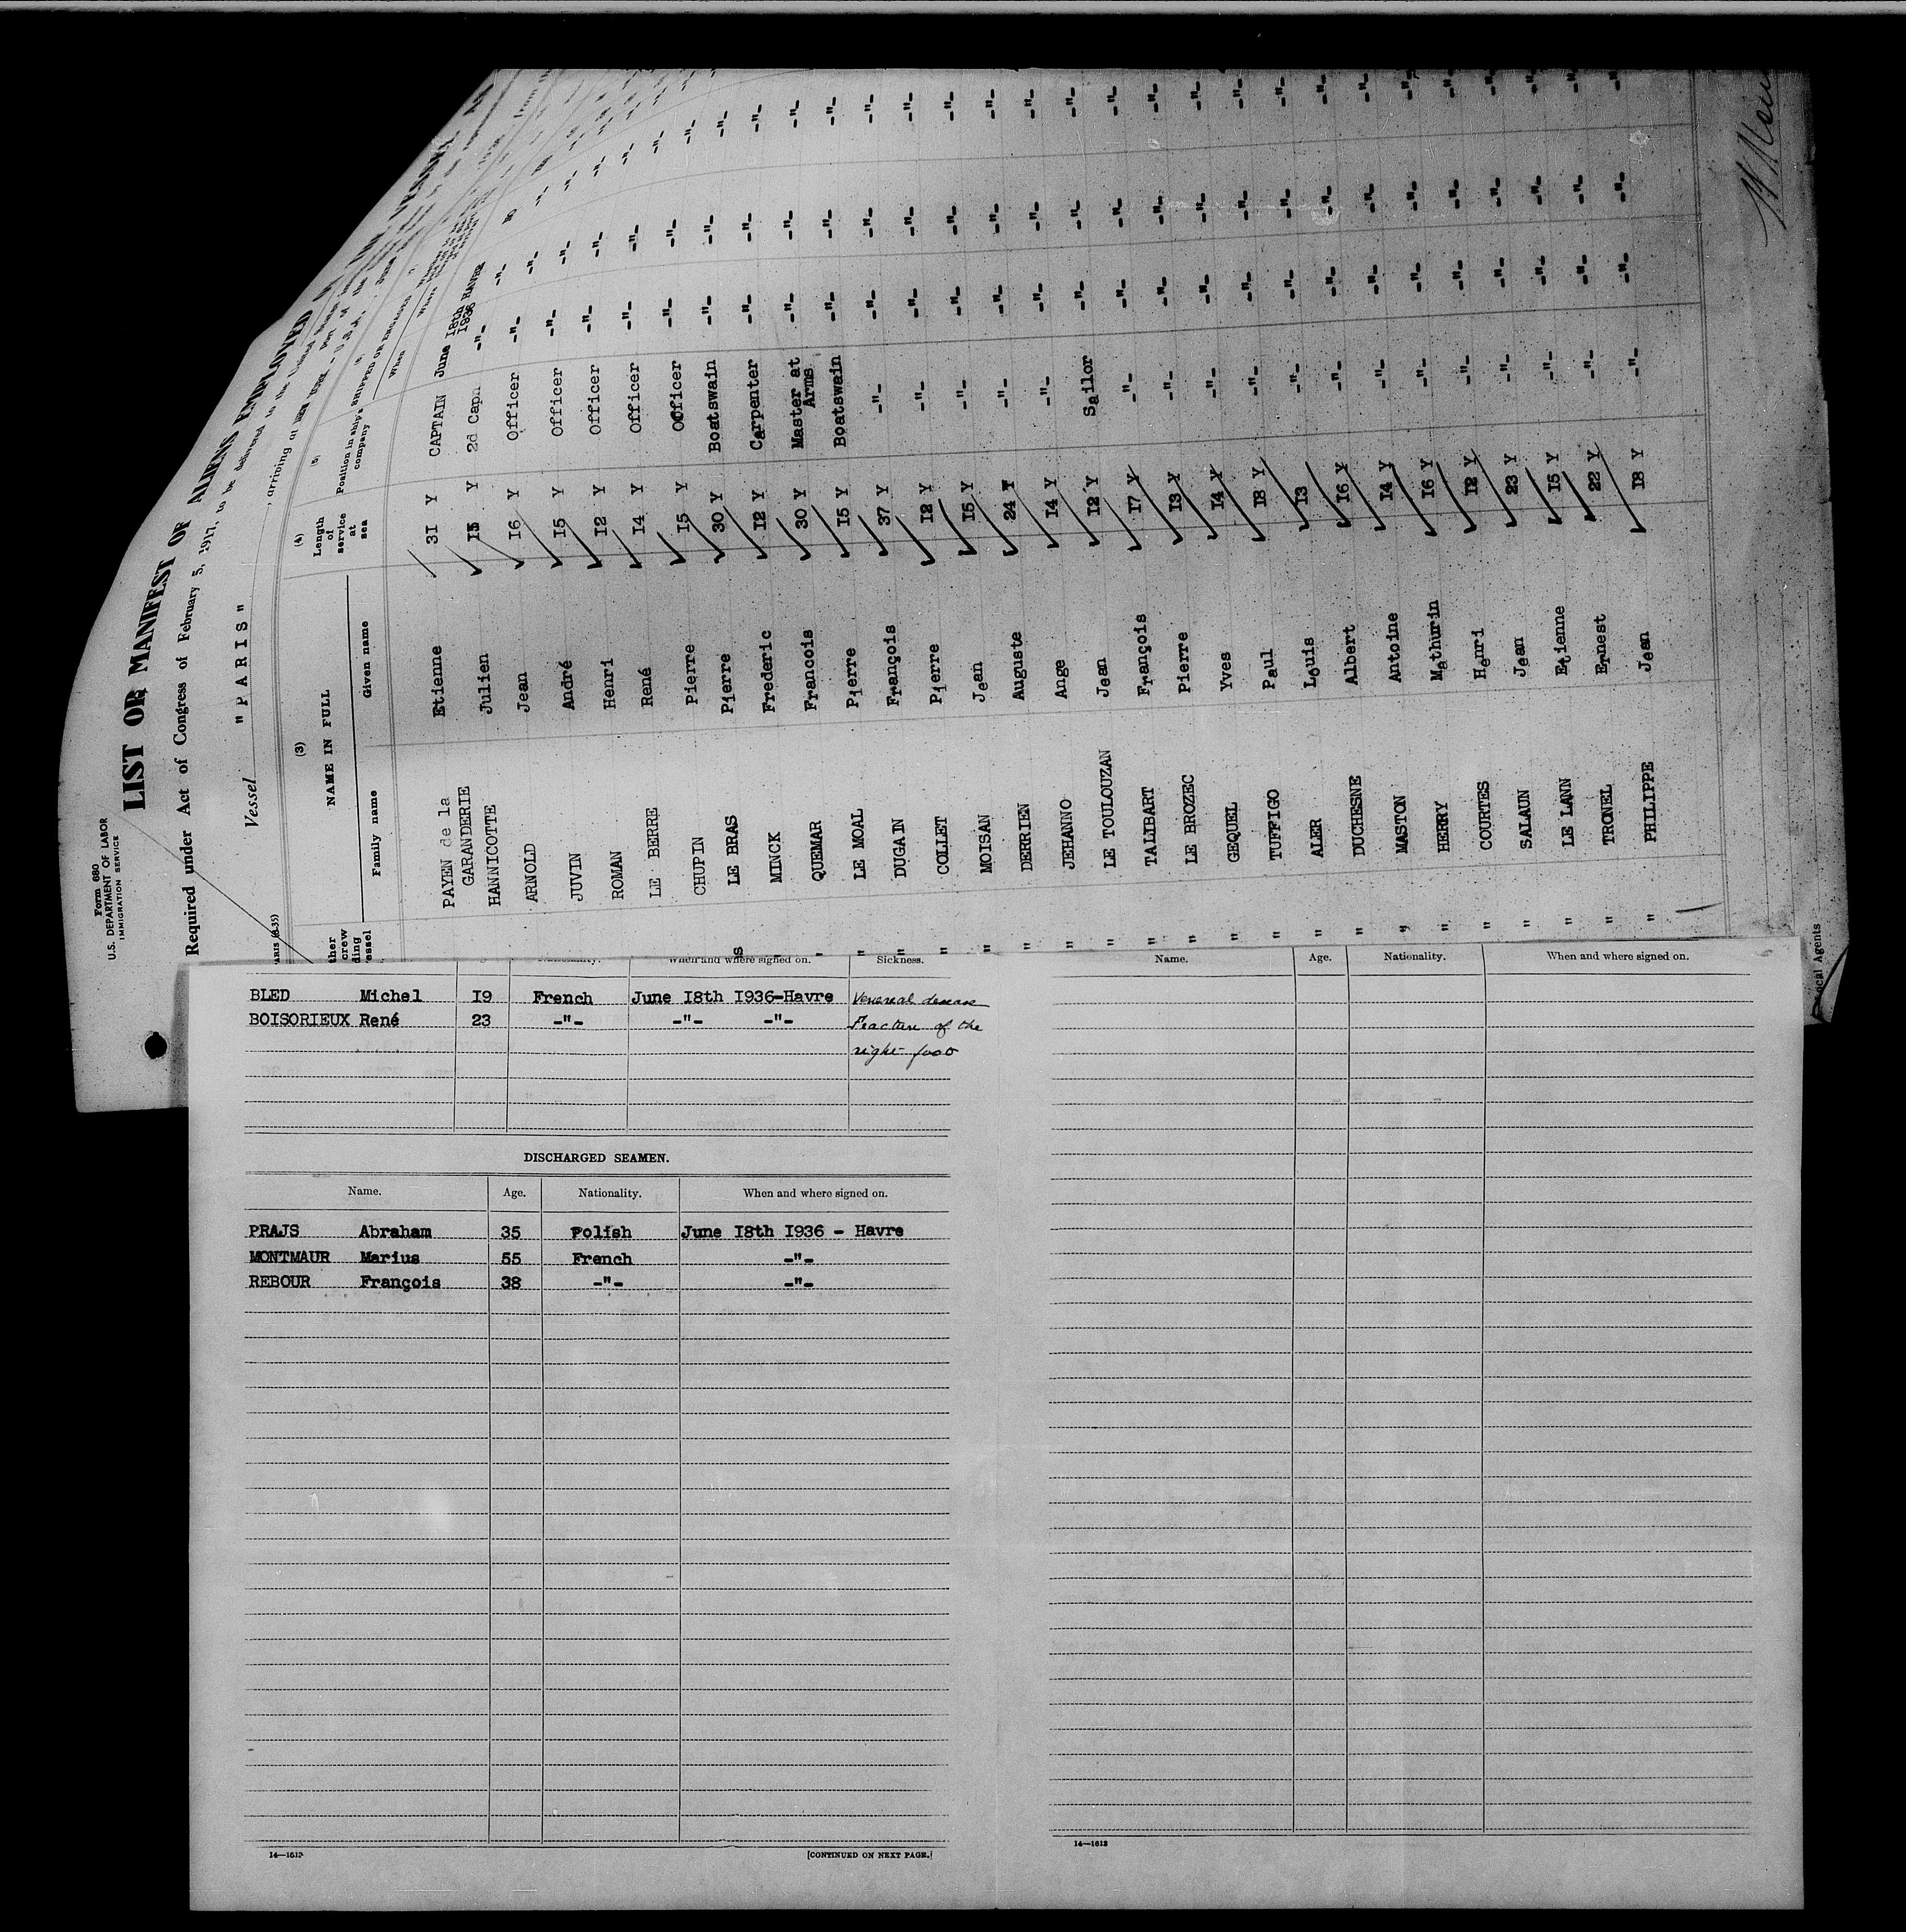 Form 680
U.S. DEPARTMENT OF LABOR
IMMIGRATION SERVICE
LIST OR MANIFEST OF ALIENS EMPLOYED
Required under Act of Congress of February 5, 1917, to be delivered to the
Vessel "PARIS" , arriving at NEW YORK - U.S.A.,
(3) (4) (5)
NAME IN FULL Length of service at sea Position in ship's company SHIPPED OR ENGAGED
Family name Given name When Where
PAYEN de la GARANDERIE Etienne 31 Y CAPTAIN June 18th 1936 HAVRE
HANNICOTTE Julien 15 Y 2d Capn -"- -"- -"-
ARNOLD Jean 16 Y Officer -"- -"- -"-
JUVIN André 15 Y Officer -"- -"- -"-
ROMAN Henri 12 Y Officer -"- -"- -"-
LE BERRE René 14 Y Officer -"- -"- -"-
CHUPIN Pierre 15 Y Officer -"- -"- -"-
LE BRAS Pierre 30 Y Boatswain -"- -"- -"-
MINCK Frederic 12 Y Carpenter -"- -"- -"-
QUEMAR Francois 30 Y Master at Arms -"- -"- -"-
LE MOAL Pierre 15 Y Boatswain -"- -"- -"-
" DUGAIN François 37 Y -"- -"- -"- -"-
" COLLET Pierre 12 Y -"- -"- -"- -"-
" MOISAN Jean 15 Y -"- -"- -"- -"-
" DERRIEN Auguste 24 Y -"- -"- -"- -"-
" JEHANNO Ange 14 Y -"- -"- -"- -"-
" LE TOULOUZAN Jean 12 Y Sailor -"- -"- -"-
" TALIBART François 17 Y -"- -"- -"- -"-
" LE BROZEC Pierre 13 Y -"- -"- -"- -"-
" GEQUEL Yves 14 Y -"- -"- -"- -"-
" TUFFIGO Paul 18 Y -"- -"- -"- -"-
" ALER Louis 13 -"- -"- -"- -"-
" DUCHESNE Albert 16 Y -"- -"- -"- -"-
" MASTON Antoine 14 Y -"- -"- -"- -"-
" HERRY Mathurin 16 Y -"- -"- -"- -"-
" COURTES Henri 12 Y -"- -"- -"- -"-
" SALAUN Jean 23 Y -"- -"- -"- -"-
" LE LANN Etienne 15 Y -"- -"- -"- -"-
" TRONEL Ernest 22 Y -"- -"- -"- -"-
" PHILIPPE Jean 18 Y -"- -"- -"- -"-
Local Agents
Nationality. When and where signed on. Sickness.
BLED Michel 19 French June 18th 1936-Havre Venereal disease
BOISORIEUX René 23 -"- -"- -"- Fracture of the
right foot
DISCHARGED SEAMEN.
Name. Age. Nationality. When and where signed on.
PRAJS Abraham 35 Polish June 18th 1936 - Havre
MONTMAUR Marius 55 French -"-
REBOUR François 38 -"- -"-
14—1613 [CONTINUED ON NEXT PAGE.]
Name. Age. Nationality. When and where signed on.
14—1613